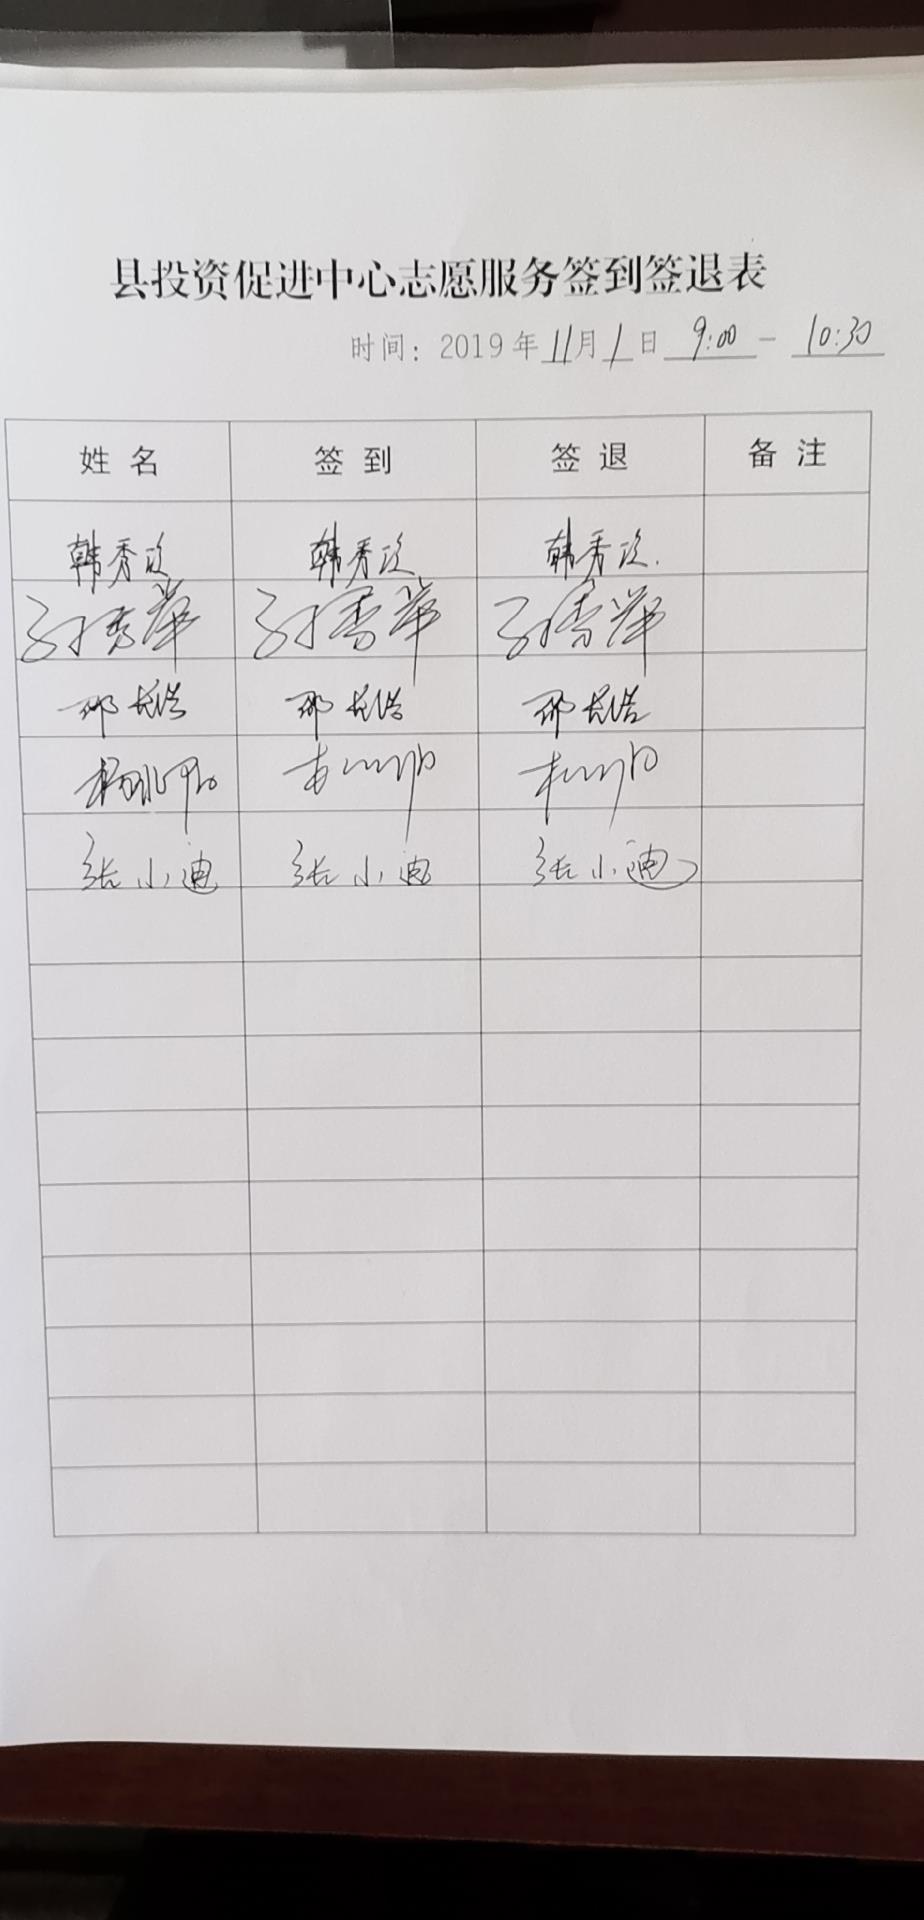 县投资促进中心志愿服务签到签退表
时间：2019年11月1日 9:00 - 10:30
姓名 签到 签退 备注
韩秀 韩秀 韩秀
孙秀举 孙秀举 孙秀举
邵长浩 邵长浩 邵长浩
杨
张小迪 张小迪 张小迪